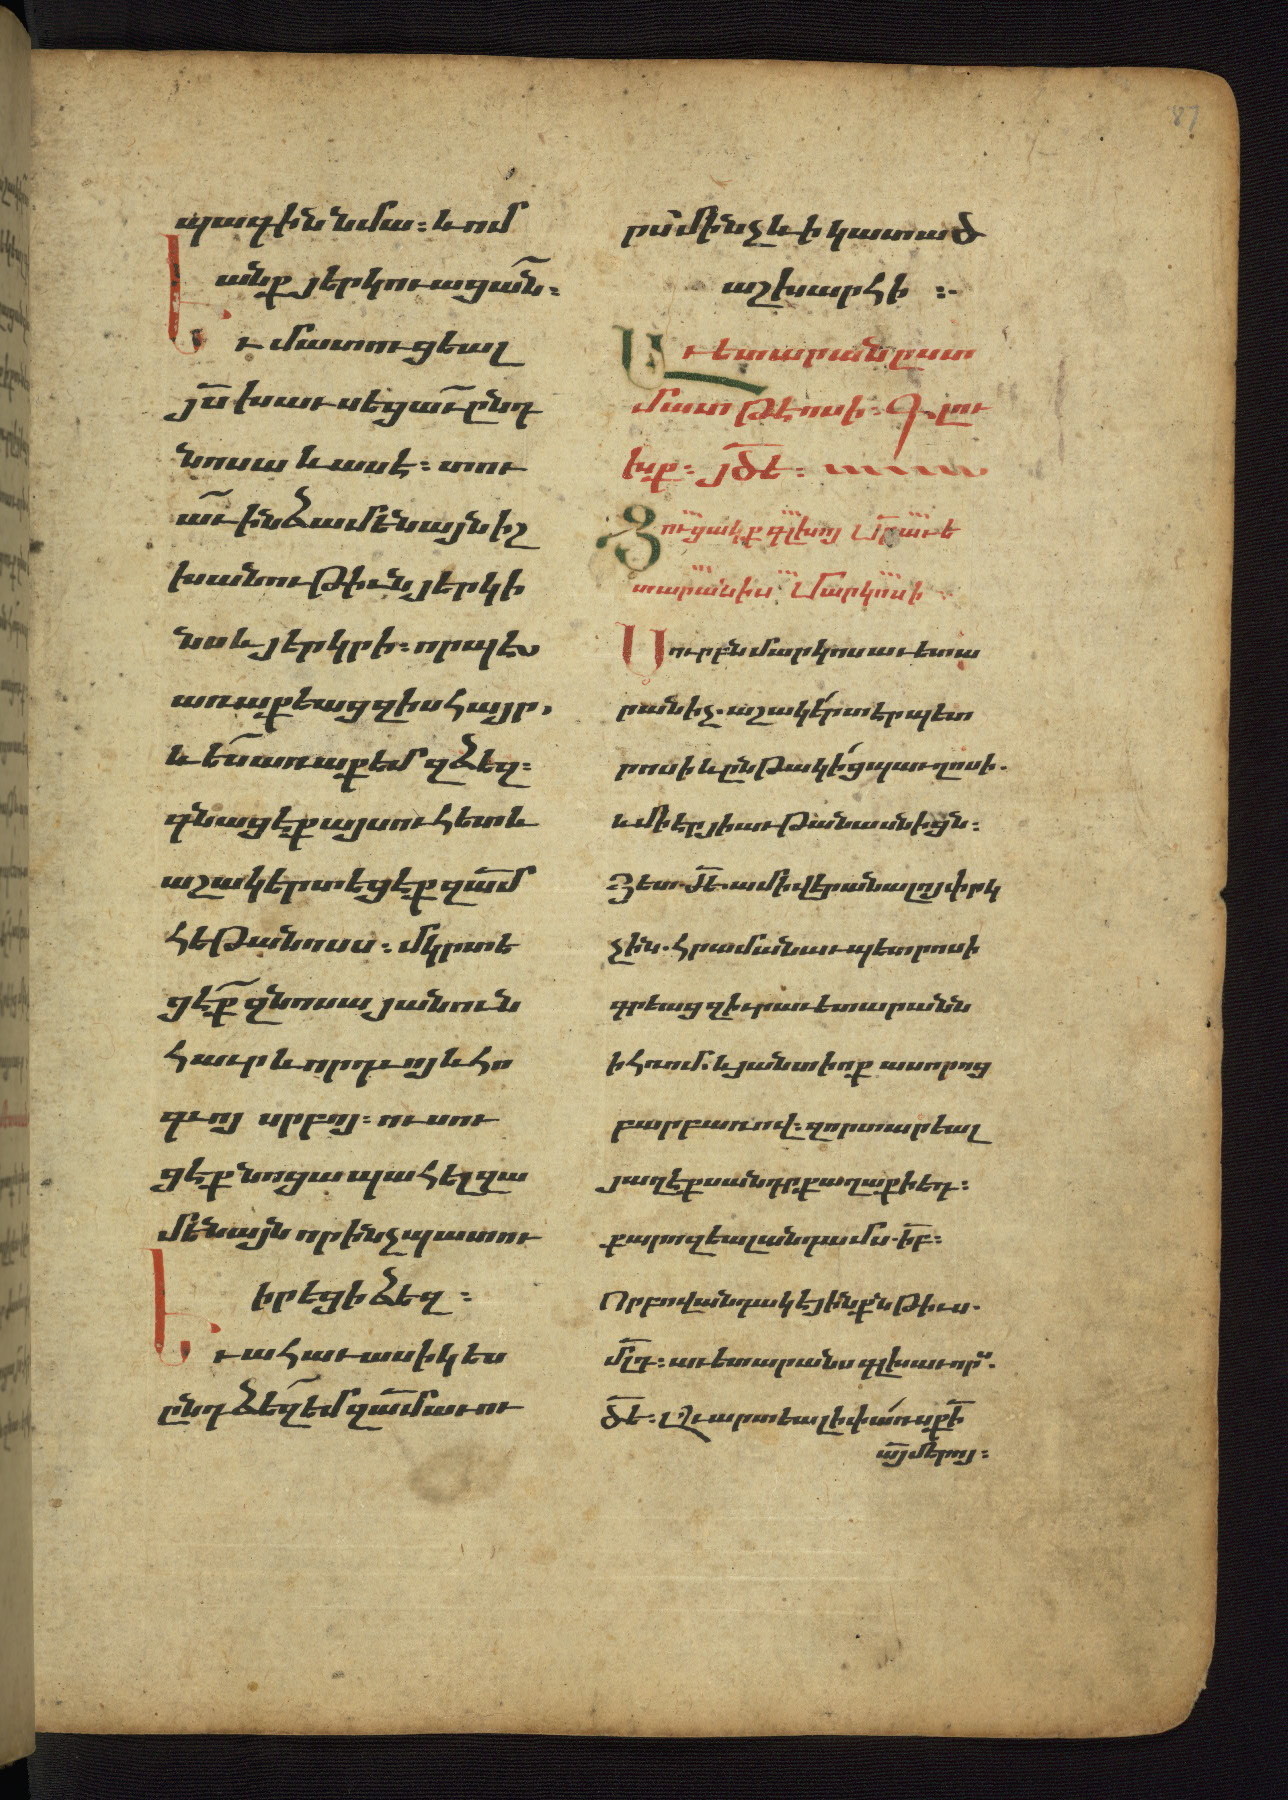 87
պագին նմա։ և ոմ
անք յերկուացա՟ն։
Եւ մատուցեալ
յ՟ս խաւսեցա՟ւ ընդ
նոսա և ասէ։ տու
ա՟ւ ինձ ամենայն իշ
խանութիւն յերկի
նս և յերկրի։ որպէս
առաքեաց զիս հայր,
և ե՟ս առաքեմ զձեզ։
գնացէք այսուհետև
աշակերտեցէք զա՟մ
հեթանոսս։ մկրտե
ցէ՟ք զնոսա յանուն
հաւր և որդւոյ և հո
գւոյ սրբոյ։ ուսու
ցէք նոցա պահել զա
մենայն որինչ պատու
իրեցի ձեզ։
Եւ ահաւասիկ ես
ընդ ձե՟զ եմ զա՟մ աւու
րս մինչև ի կատած
աշխարհի ։-
Աւետարան ըստ
մատթէոսի։ Գլու
խք։ յ՟ծե։
Յուցակք գլխոյ Սրաւե
տարանիս Մարկոսի
Սուրբն մարկոս աւետա
րանիչ. աշակերտ էր պետ
րոսի և ընթակից պաւղոսի.
և մի էր յիւթանասնիցն։
Յետ մ՟ե ամի վերանալոյ փրկ
չին. հրամանաւ պետրոսի
գրեաց զիւր աւետարանն
ի հռոմ. և յանտիոք ասորոց
բարբառով։ զոր տարեալ
յաղէքսանդր քաղաքի եդ։
քարոզեալ անդ ամս. ի՟բ։
Որ բովանդակէ յինքն թիւս.
մ՟լդ։ աւետարանս գլխաւորս.
ծ՟ե։ Աւարտեալ ի փառս ք՟ի
ա՟յ մերոյ։